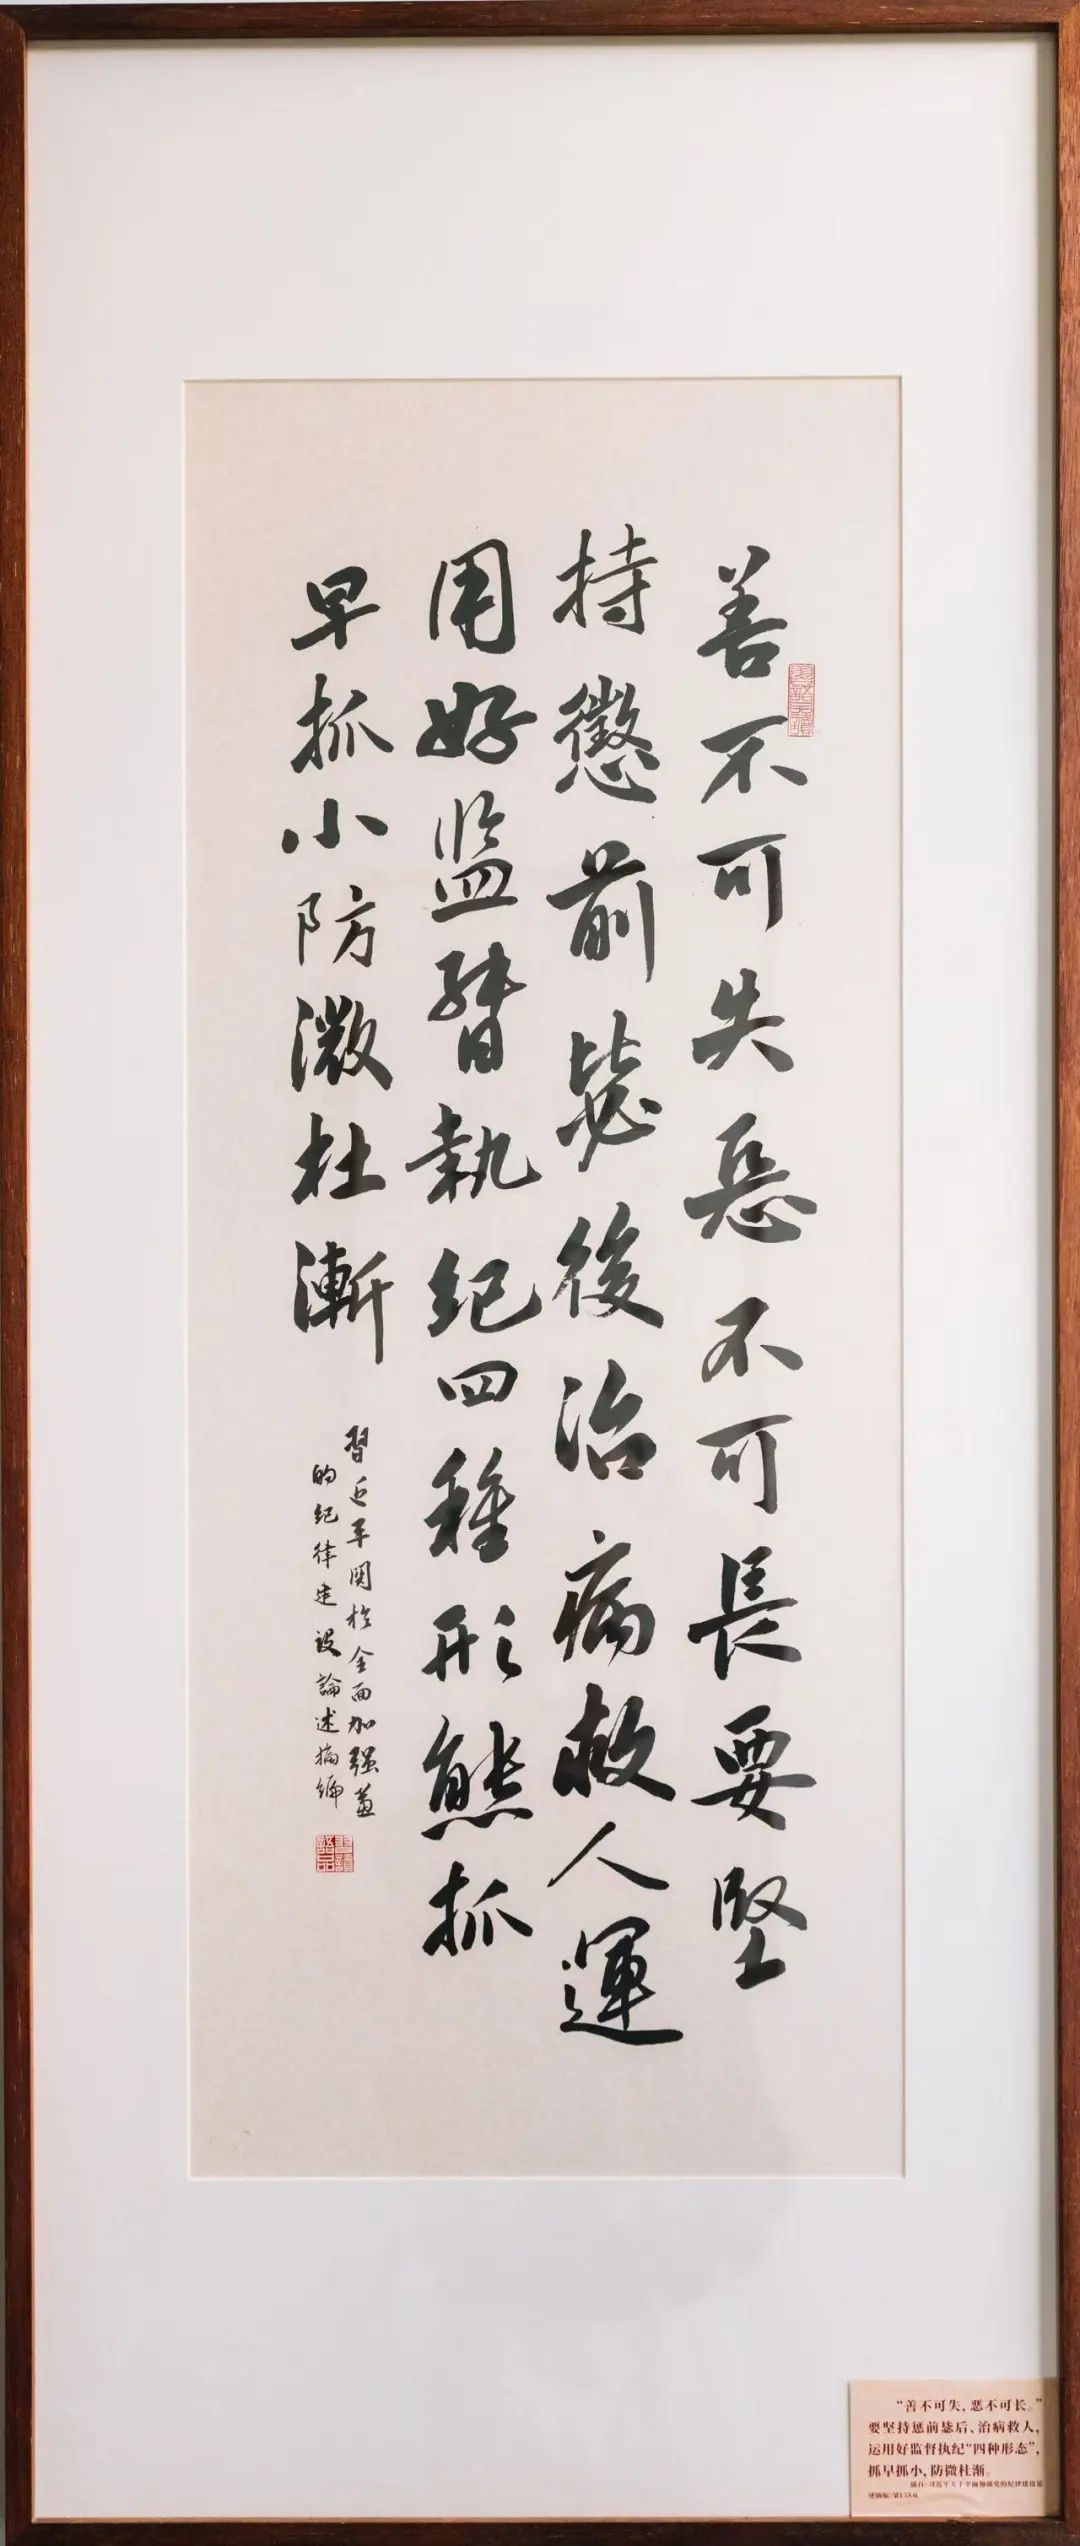 善不可失惡不可長要堅
持懲前毖後治病救人運
用好监督執纪四種形態抓
早抓小防微杜漸
習近平関於全面加强黨
的纪律建設論述摘编
“善不可失，恶不可长。”
要坚持惩前毖后、治病救人，
运用好监督执纪“四种形态”，
抓早抓小，防微杜渐。
摘自《习近平关于全面加强党的纪律建设论
述摘编》第158页